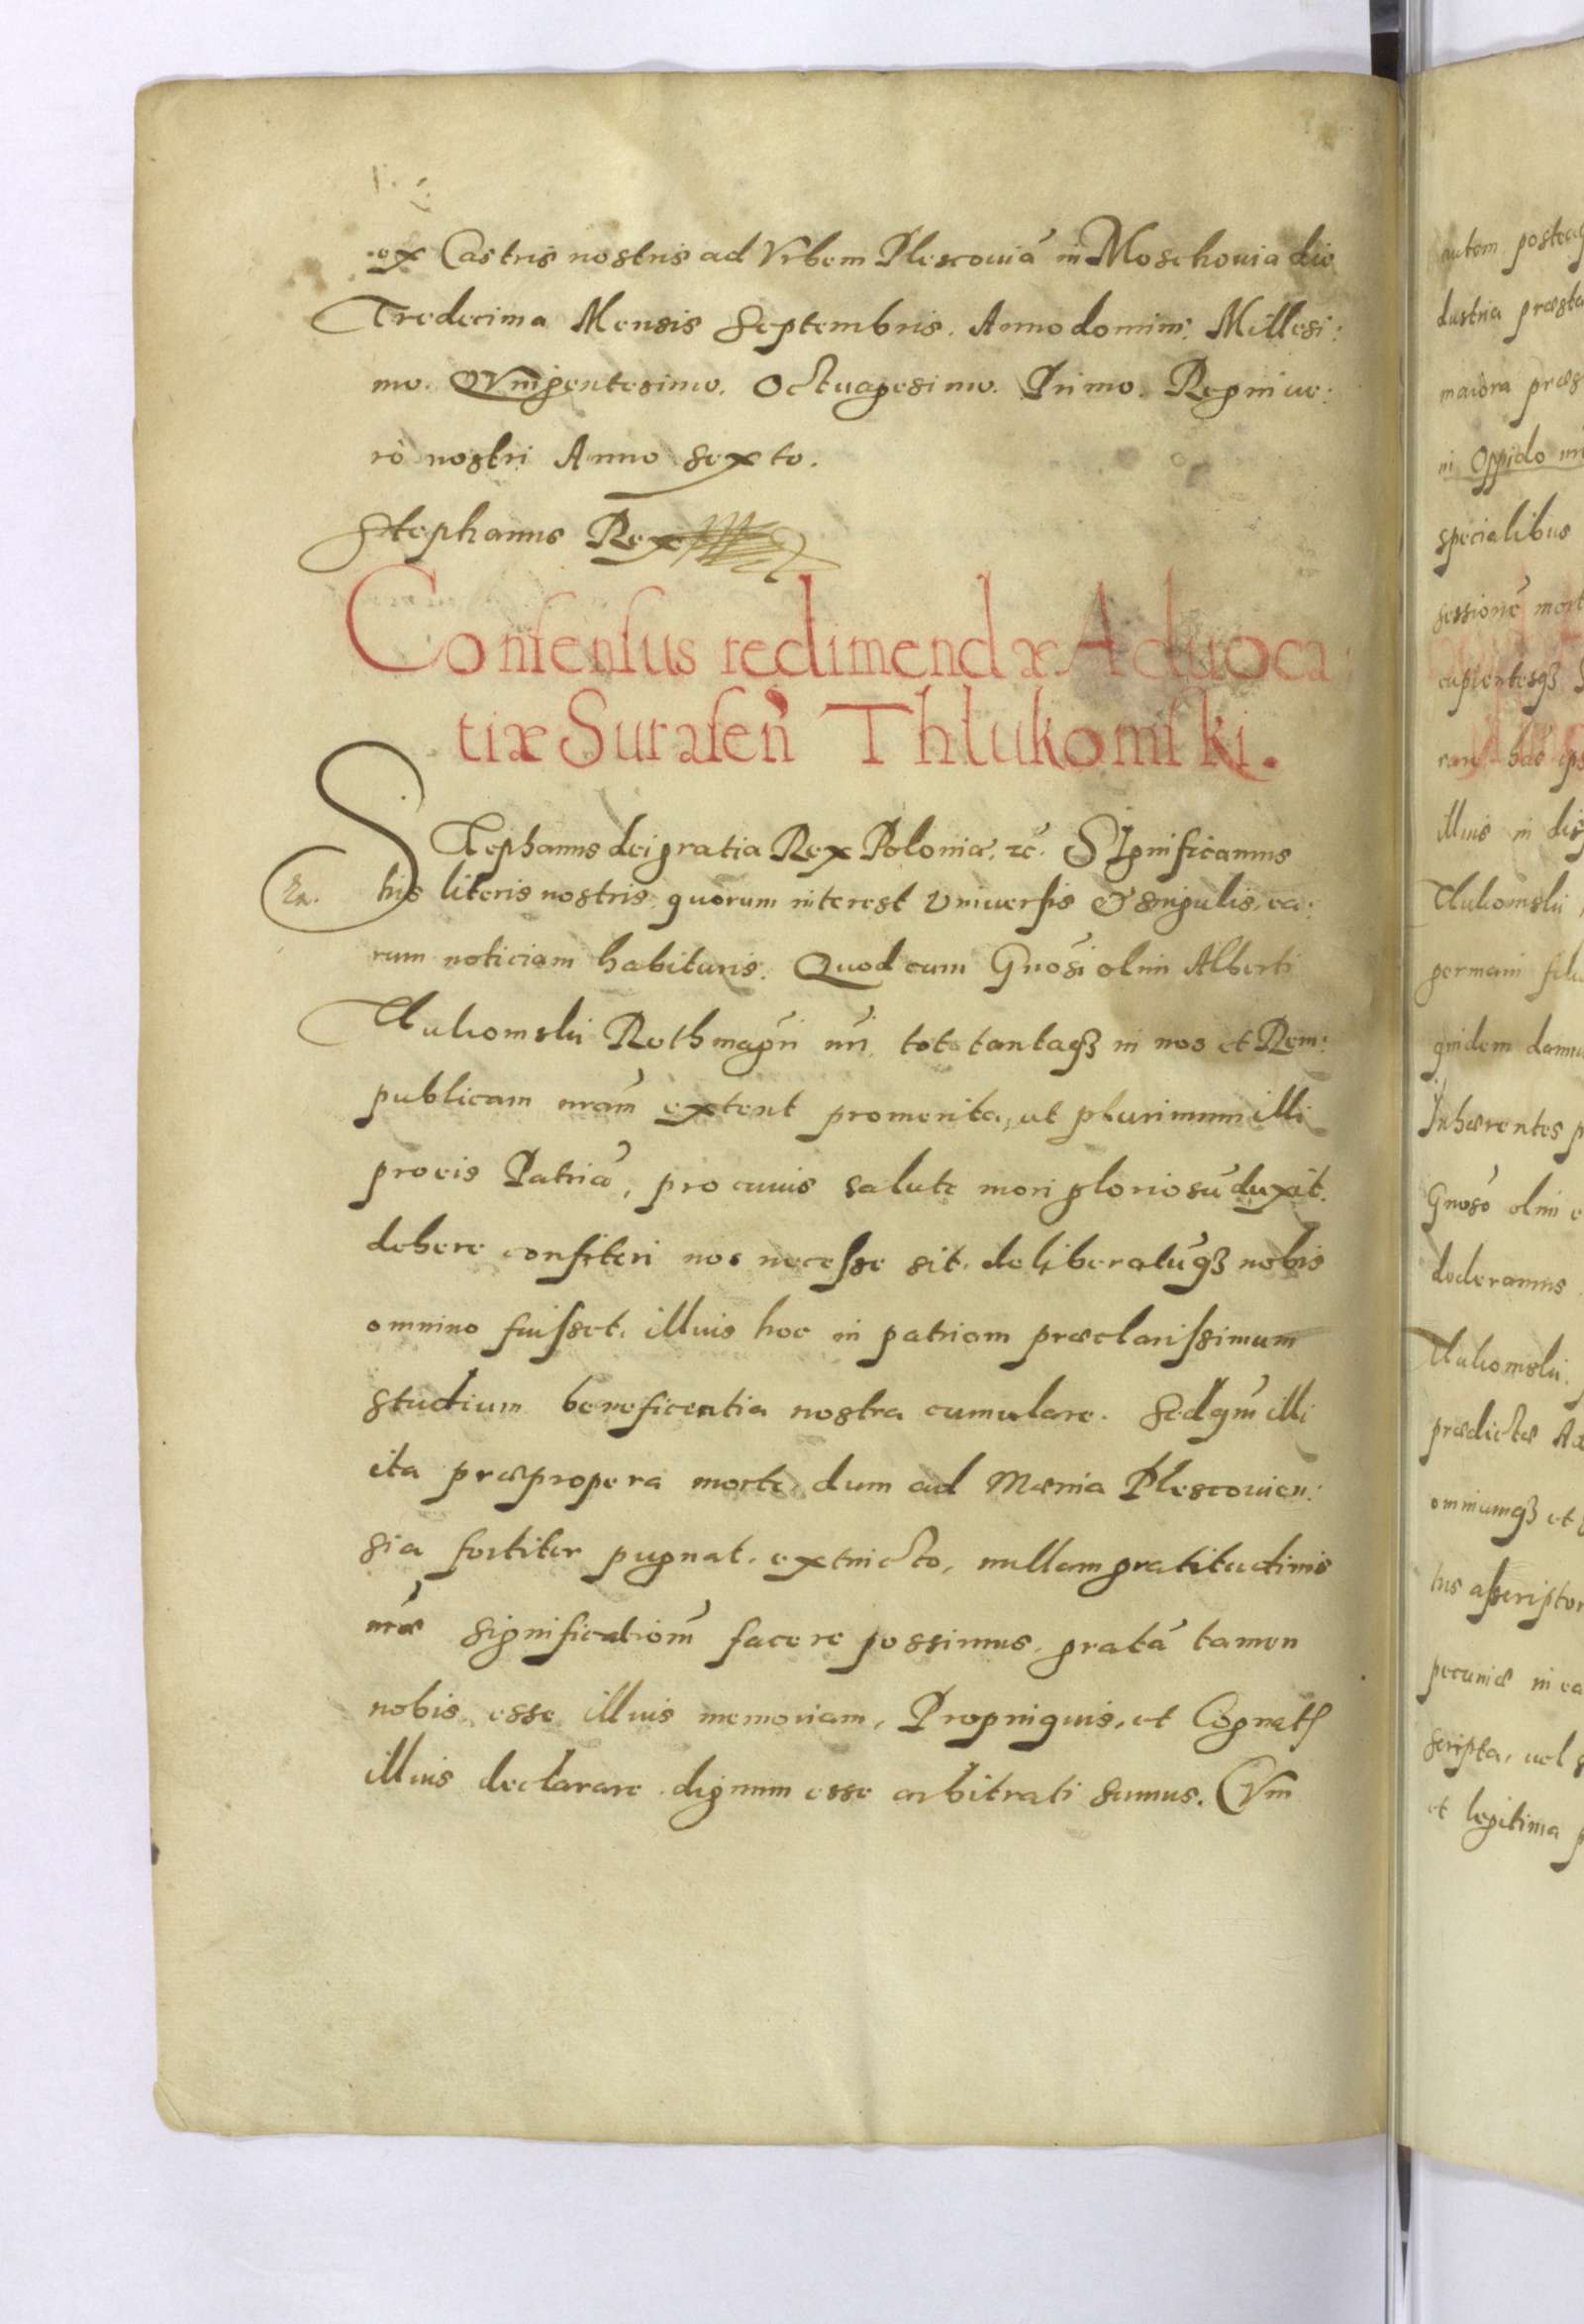 ex Castris nostris ad Vrbem Plescouiã in Moschouia die
Tredecima Mensis Septembris. Anno domini. Millesi:
mo. QVingentesimo. Octuagesimo. Primo. Regni ue:
rò nostri Anno sexto.
Stephanus Rex
Conſenſus redimendæ Aduoca
tiæ Suraſeñ Thlukomſki.
STephanus dei gratia Rex Poloniæ. &c̃. SIgnificamus
his literis nostris quorum interest Vniuerſis & singulis, ea:
rum noticiam habituris. Quod cum Gnosi olim Alberti
Tlukomskii Rothmagri nri, tot tantaqȝ in nos et Rem:
publicam nram extent promerita, ut plurimum illi
pro eis Patriã, pro cuius salute mori gloriosũ duxit.
debere confiteri nos neceſse sit. deliberatũqȝ nobis
omnino fuiſset. illius hoc in patriam præclariſsimum
studium beneficentia nostra cumulare. Sed qm̃ illi
ita præpropera morte, dum ad Mænia Plescouien:
sia fortiter pugnat. extincto, nullam gratitudinis
nr̃æ significatiom̃ facere possimus. gratã tamen
nobis esse illius memoriam, Propinquis, et Cognatꝭ
illius declarare dignum esse arbitrati sumus. CVm
autem posteaq
dustria præsta
maiora præs
in Oppido
specialibus
sessionẽ mort
cupientesqȝ
illius in
Tlukomskii
germani
quidem
Inhærentes
Gnoso olim
dederamus
Tlukomskii.
prædictæ
omniumqȝ et
pecuniæ in ea
scripta, uel
et legitima